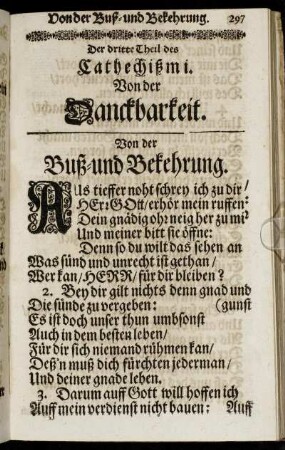 Von der Buß- und Bekehrung. 297
Der dritte Theil des
Cathechißmi.
Von der
Danckbarkeit.
Von der
Buß- und Bekehrung.
AUs tieffer noht schrey ich zu dir/
HErr GOtt/ erhör mein ruffen:
Dein gnädig ohr neig her zu mir
Und meiner bitt sie öffne:
Denn so du wilt das sehen an
Was sünd und unrecht ist gethan/
Wer kan/ HERR/ für dir bleiben?
2. Bey dir gilt nichts denn gnad und
Die sünde zu vergeben: (gunst
Es ist doch unser thun umbsonst
Auch in dem besten leben/
Für dir sich niemand rühmen kan/
Deß'n muß dich fürchten jederman/
Und deiner gnade leben.
3. Darum auff Gott will hoffen ich
Auff mein verdienst nicht bauen: Auff